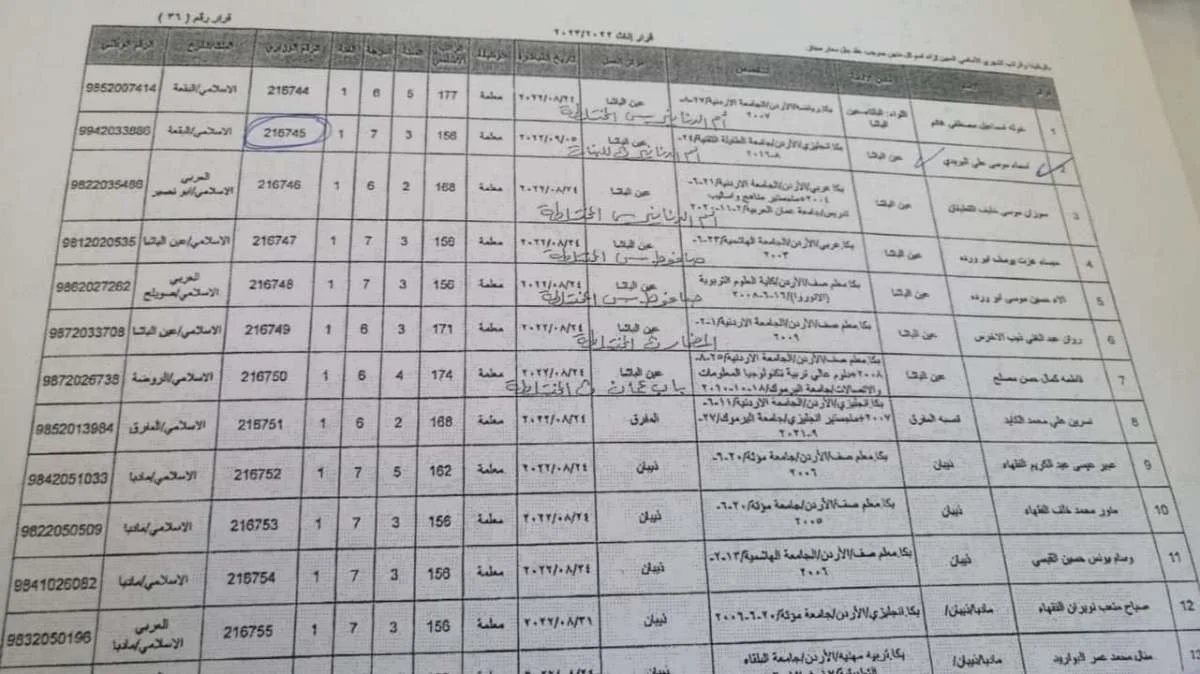 قرار رقم (٣٦)
قرار إناث ٢٠٢٣/٢٠٢٢
الاسم
التخصص
مركز العمل
الوظيفة
الدرجة
الفئة
الرقم الوزاري
الرقم الوطني
1 خوله اسماعيل مصطفى غانم عين الباشا بكا.رياضة/الأردن/الجامعة الاردنية/٢٧- ٢٠٠٧ عين الباشا ٢٠٢٢/٠٨/٢٤ معلمة 177 5 6 1 216744 الاسلامي/البقعة 9852007414
أم الدنانير س المختلطة
2 اسماء موسى علي عين الباشا بكا.انجليزي/الأردن/جامعة الطفيلة التقنية/٢٤- ٨-٢٠١٦ عين الباشا ٢٠٢٢/٠٩/٠٥ معلمة 156 3 7 1 216745 الاسلامي/البقعة 9942033886
أم الدنانير
3 سوزان موسى خليف عين الباشا بكا.عربي/الأردن/الجامعة الاردنية/٢١-٦-
٢٠٠٤+ماجستير مناهج واساليب
تدريس/جامعة عمان العربية/٢-١١-٢٠٢٠ عين الباشا ٢٠٢٢/٠٨/٢٤ معلمة 168 2 6 1 216746 العربي الاسلامي/ابو نصير 9822035486
أم الدنانير س المختلطة
4 ميساء عزت يوسف ابو ورده عين الباشا بكا.عربي/الأردن/الجامعة الهاشمية/٢٣-٦-
٢٠٠٣ عين الباشا ٢٠٢٢/٠٨/٢٤ معلمة 156 3 7 1 216747 الاسلامي/عين الباشا 9812020535
صافوط س المختلطة
5 الاء حسين موسى ابو ورده عين الباشا بكا.معلم صف/الأردن/كلية العلوم التربوية
(الانوروا)/١٦-٦-٢٠٠٨ عين الباشا ٢٠٢٢/٠٨/٢٤ معلمة 156 3 7 1 216748 العربي الاسلامي/صويلح 9862027262
صافوط س المختلطة
6 روان عبد الغني ذيب الاخرس عين الباشا بكا.معلم صف/الأردن/الجامعة الاردنية/١-٢-
٢٠٠٩ عين الباشا ٢٠٢٢/٠٨/٢٤ معلمة 171 3 6 1 216749 الاسلامي/عين الباشا 9872033708
المختلطة
7 فاطمه كمال حسن مصلح عين الباشا بكا.معلم صف/الأردن/الجامعة الاردنية/٢٥-٨-
٢٠٠٨+دبلوم عالي تربية تكنولوجيا المعلومات
والاتصالات/جامعة اليرموك/١٨-١٠-٢٠١٠ عين الباشا ٢٠٢٢/٠٨/٢٤ معلمة 174 4 6 1 216750 الاسلامي/الروضة 9872026738
باب عمان المختلطة
8 نسرين علي محمد قصبه المفرق بكا.انجليزي/الأردن/الجامعة الاردنية/١١-٦-
٢٠٠٧+ماجستير انجليزي/جامعة اليرموك/٢٧-
٩-٢٠٢١ المفرق ٢٠٢٢/٠٨/٢٤ معلمة 168 2 6 1 216751 الاسلامي/المفرق 9852013984
9 عبير عيسى عبد الكريم الفقهاء ذيبان بكا.معلم صف/الأردن/جامعة مؤتة/٢٠-٦-
٢٠٠٦ ذيبان ٢٠٢٢/٠٨/٢٤ معلمة 162 5 7 1 216752 الاسلامي/مادبا 9842051033
10 محمد خالف الفقهاء ذيبان بكا.معلم صف/الأردن/جامعة مؤتة/٢٠-٦-
٢٠٠٥ ذيبان ٢٠٢٢/٠٨/٢٤ معلمة 156 3 7 1 216753 الاسلامي/مادبا 9822050509
11 وسام يونس حسين القيسي ذيبان بكا.معلم صف/الأردن/الجامعة الهاشمية/١٣-٢-
٢٠٠٦ ذيبان ٢٠٢٢/٠٨/٢٤ معلمة 156 3 7 1 216754 الاسلامي/مادبا 9841026082
12 صباح متعب نويران الفقهاء مادبا/ذيبان/ بكا.انجليزي/الأردن/جامعة مؤتة/٢٠-٦-٢٠٠٦ ذيبان ٢٠٢٢/٠٨/٣١ معلمة 156 3 7 1 216755 العربي الاسلامي/مادبا 9832050196
منال محمد عمر مادبا/ذيبان/ بكا.تربيه مهنيه/الأردن/جامعة البلقاء